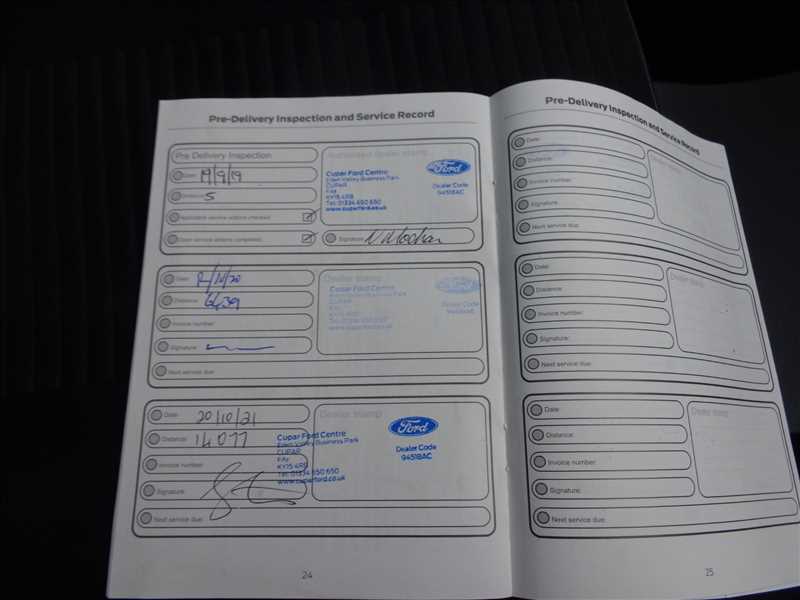 Pre-Delivery Inspection and Service Record
Pre Delivery Inspection
Date: 19/9/19
5
Applicable service actions checked
Open service actions completed
Authorised dealer stamp
Cupar Ford Centre
Eden Valley Business Park
CUPAR
Fife
KY15 4RB
Tel: 01334 650 650
www.cuparford.co.uk
Ford
Dealer Code
94518AC
Signature:
Date: /10/20
Distance:
Invoice number:
Signature:
Next service due:
Dealer stamp
Cupar Ford Centre
Eden Valley Business Park
CUPAR
www.cuparford.co.uk
Ford
Dealer Code
94518AC
Date: 20/10/21
Distance: 14077
Invoice number:
Signature:
Next service due:
Dealer stamp
Cupar Ford Centre
Eden Valley Business Park
CUPAR
KY15 4RB
Tel: 01334 650 650
www.cuparford.co.uk
Ford
Dealer Code
94518AC
24
Pre-Delivery Inspection and Service Record
Date:
Distance:
Invoice number:
Signature:
Next service due:
Dealer stamp
Date:
Distance:
Invoice number:
Signature:
Next service due:
Dealer stamp
Date:
Distance:
Invoice number:
Signature:
Next service due:
Dealer stamp
25